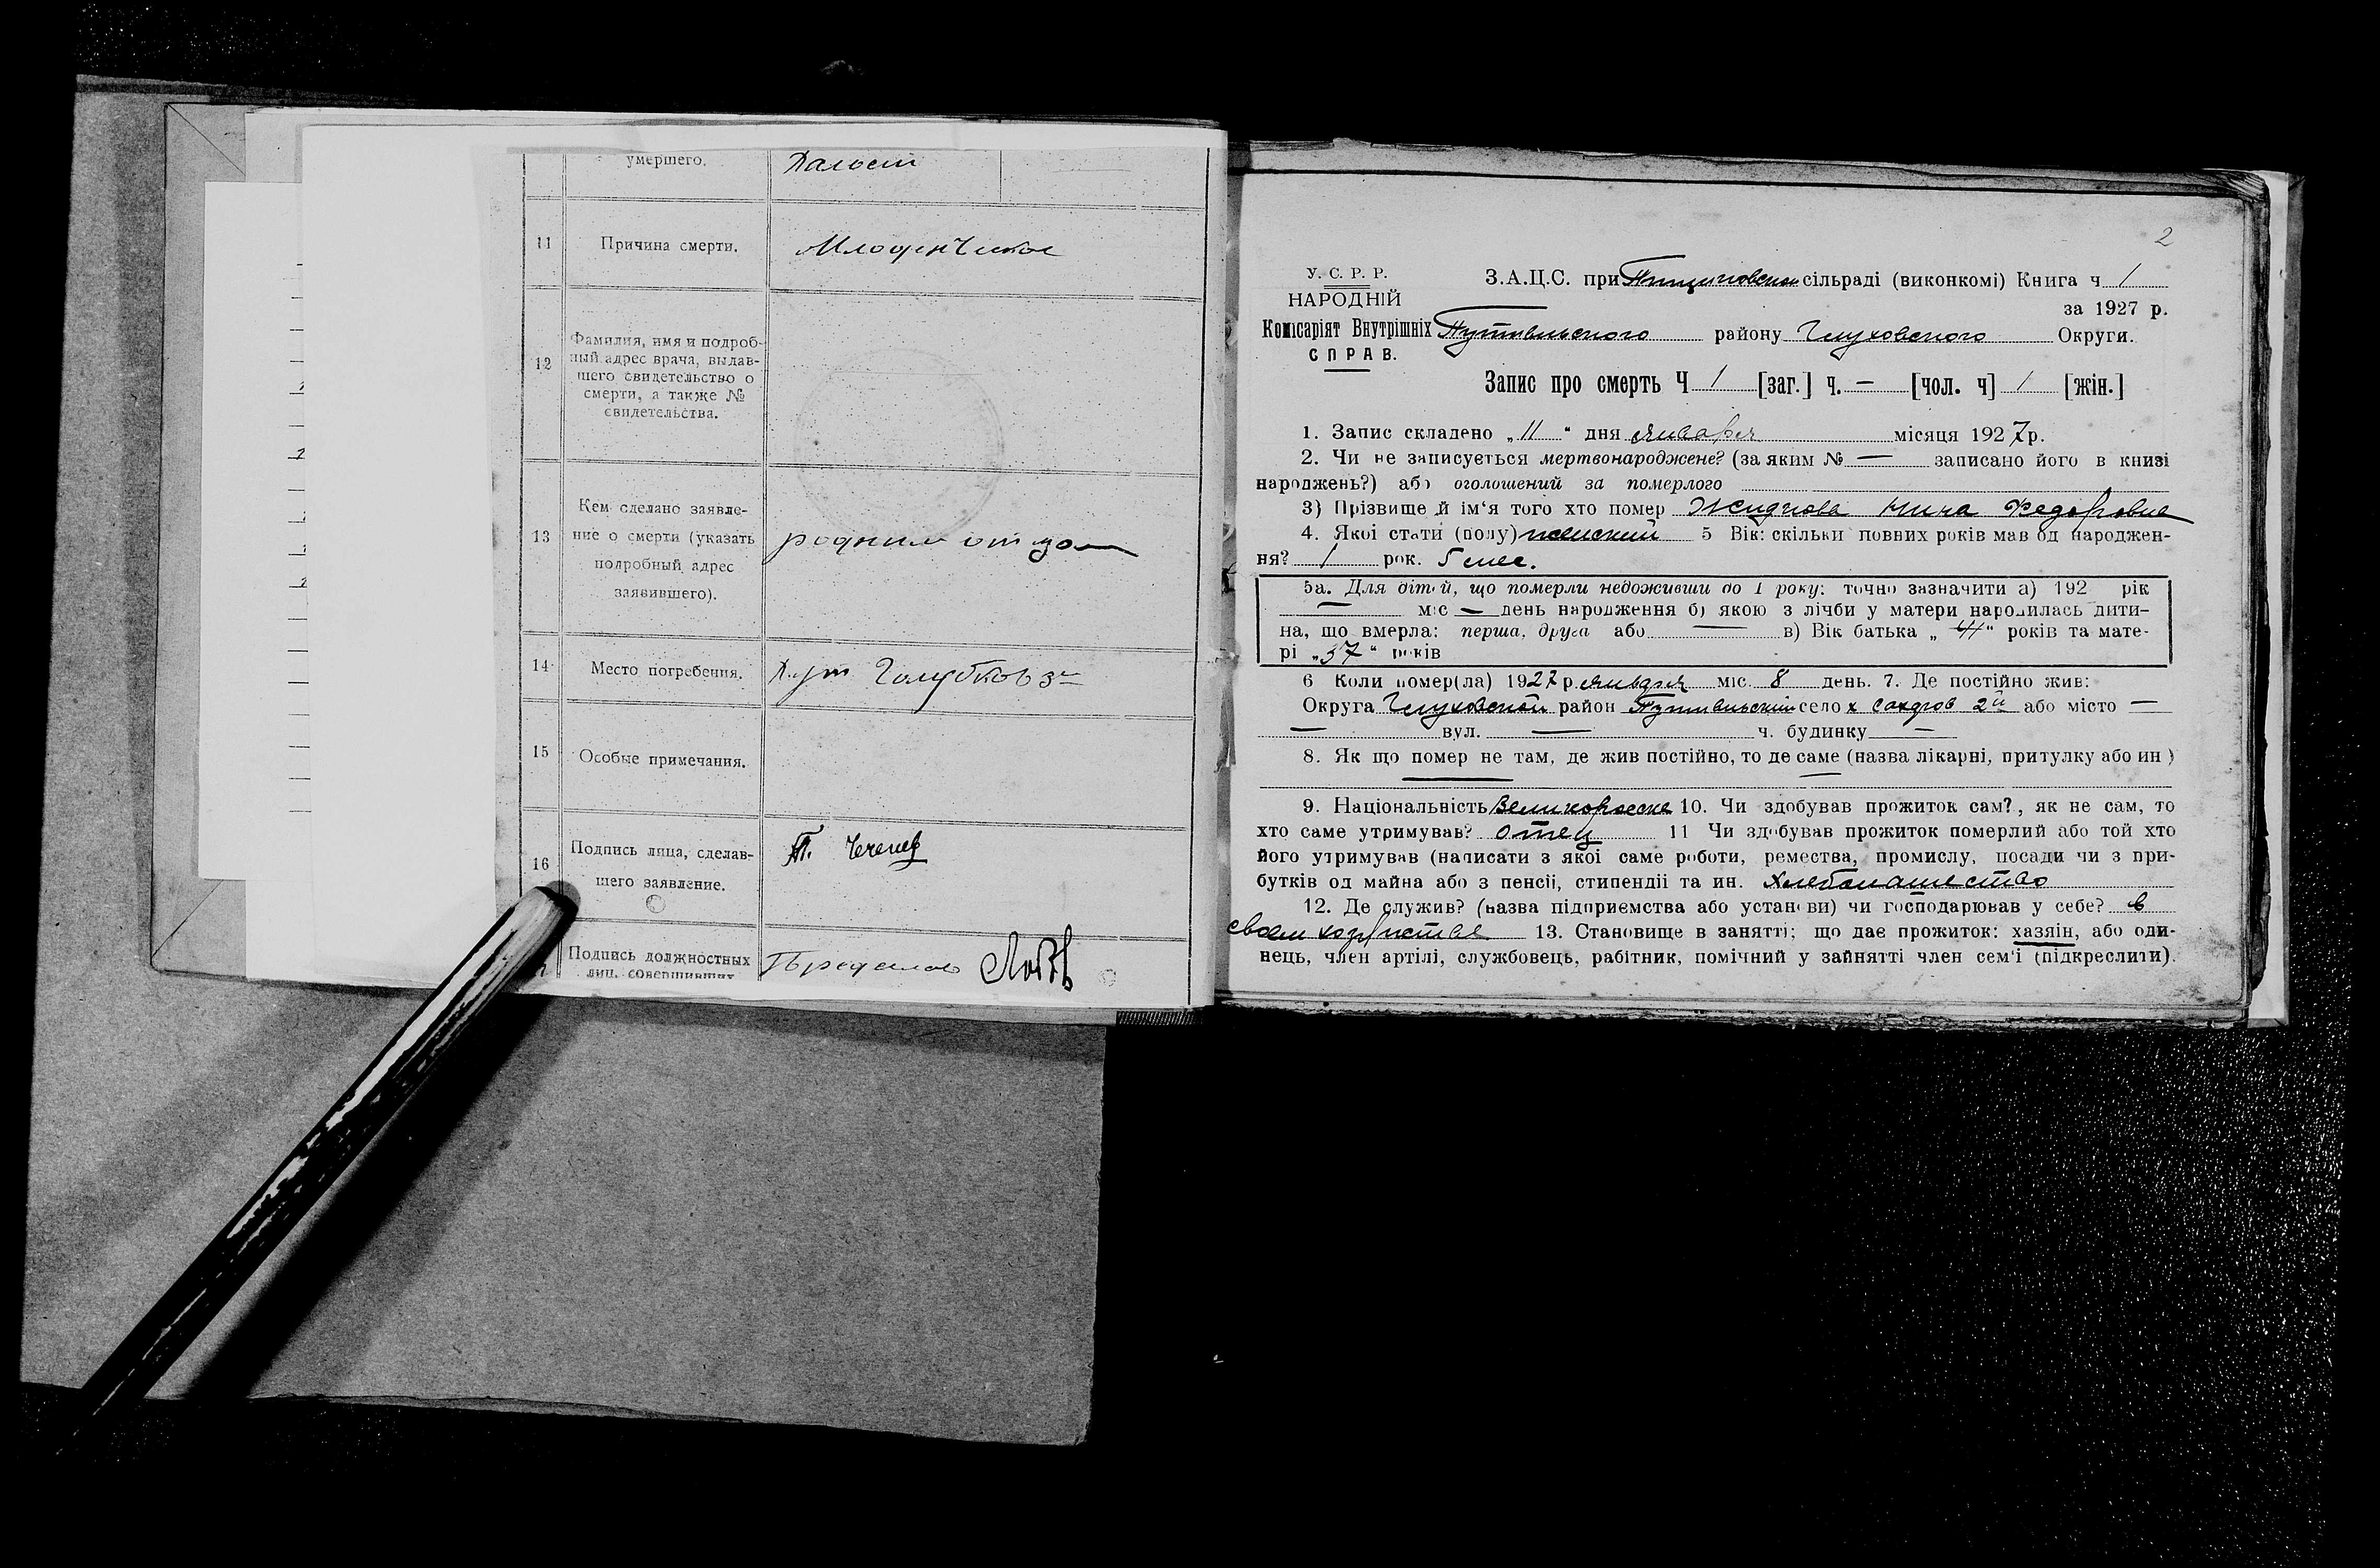 умершего.
Холост
11 Причина смерти. Младенческое
12 Фамилия, имя и подроб-
ный адрес врача, выдав-
шего свидетельство о
смерти, а также №
свидетельства.
13 Кем сделано заявле-
ние о смерти (указать
подробный адрес
заявившего).
родным отцом
14 Место погребения. Хут Голубков
15 Особые примечания.
16 Подпись лица, сделав-
шего заявление.
Подпись должностных
лиц, совершивших
2
У. С. Р. Р.
НАРОДНІЙ
Комісаріят Внутрішніх
СПРАВ.
З.А.Ц.С. при сільраді (виконкомі) Книга ч 1
за 1927 р.
Путивльского району Глуховского Округи.
Запис про смерть Ч 1 [заг.] ч. — [чол. ч] 1 [жін.]
1. Запис складено „11“ дня января місяця 1927 р.
2. Чи не записується мертвонароджене? (за яким № — записано його в книзі
народжень?) або оголошений за померлого
3) Прізвище й ім‘я того хто помер Жиднова Нина Федоровна
4. Якої стати (полу) женский 5 Вік: скільки повних років мав од народжен-
ня? 1 рок. 5 мес.
5а. Для дітей, що померли недоживши до 1 року: точно зазначити а) 192 рік
— міс — день народження б) якою з лічби у матери народилась дити-
на, що вмерла: перша, друга або — в) Вік батька „41“ років та мате-
рі „37“ років
6 Коли помер(ла) 1927 р января міс. 8 день. 7. Де постійно жив:
Округа Глуховской район Путивльский село х 2й або місто —
— вул. — ч. будинку —
8. Як що помер не там, де жив постійно, то де саме (назва лікарні, притулку або ин )
9. Національність Великоросска 10. Чи здобував прожиток сам?, як не сам, то
хто саме утримував? отец 11 Чи здобував прожиток померлий або той хто
його утримував (написати з якої саме роботи, ремества, промислу, посади чи з при-
бутків од майна або з пенсії, стипендії та ин. хлебопашество
12. Де служив? (назва підприємства або установи) чи господарював у себе? в
своем хозяйстве 13. Становище в занятті; що дає прожиток: хазяїн, або оди-
нець, член артілі, службовець, рабітник, помічний у зайнятті член сем‘ї (підкреслити).